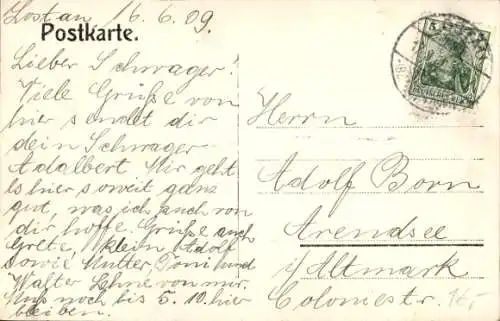 Lostau 16.6.09.
Postkarte.
Lieber Schwager!
Viele Grüße von
hier sendet dir
dein Schwager
Adalbert Mir geht
es hier soweit ganz
gut, was ich auch von
dir hoffe. Grüße auch
Grete, klein Adolf
sowie Mutter, Toni und
Walter Lehne von mir.
Muß noch bis 5.10. hier
bleiben.
5
Herrn
Adolf Born
Arendsee
i/ Altmark
Coloniestr.